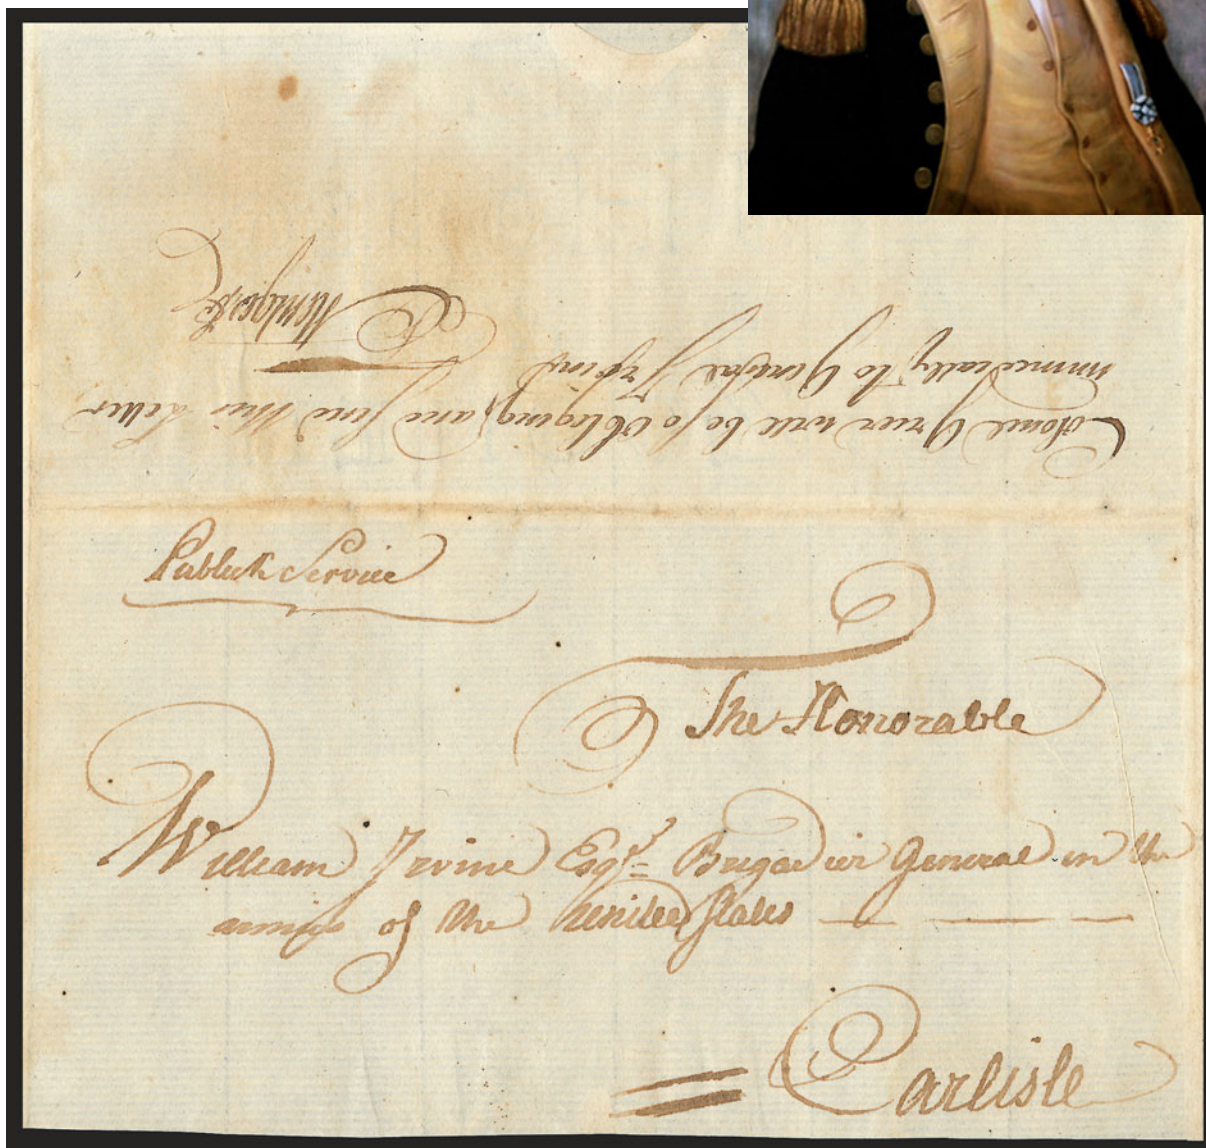 Colonel Grier will be so obliging, and send this Letter
immediately to General Irvine
Publick Service
The Honorable
William Irvine Esqr. Brigadier General in the
armies of the United States
Carlisle